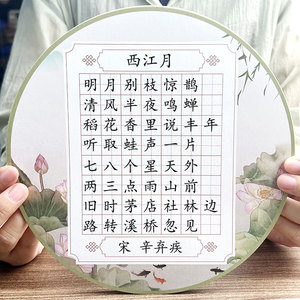 西江月
明月别枝惊鹊
清风半夜鸣蝉
稻花香里说丰年
听取蛙声一片
七八个星天外
两三点雨山前
旧时茅店社林边
路转溪桥忽见
宋 辛弃疾